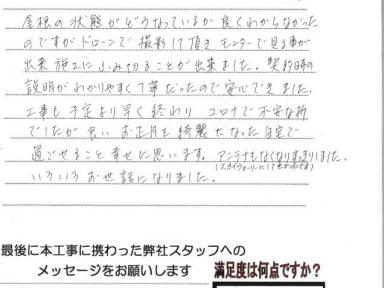 屋根の状態がどうなっているか良くわからなかった
のですがドローンで撮影して頂きモニターで見る事が
出来施工にふみ切ることが出来ました。契約時の
説明がわかりやすく丁寧だったので安心できました。
工事も予定より早く終わり コロナで不安な所
でしたが良いお正月を綺麗になった自宅で
過ごせること幸せに思います。アンテナもなくなりすっきりしました。
(スカイウォーリーにして良かったです)
いろいろお世話になりました。
最後に本工事に携わった弊社スタッフへの
メッセージをお願いします
満足度は何点ですか?